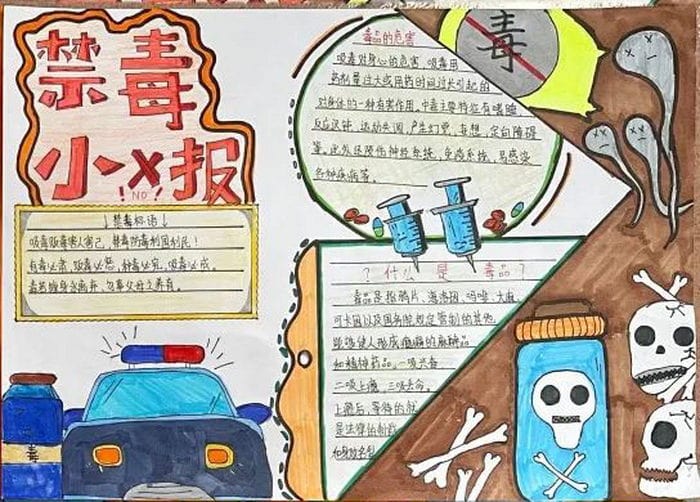 禁毒
小报
!NO!
↓禁毒标语↓
吸毒贩毒害人害己，禁毒防毒利国利民！
有毒必肃，贩毒必惩，种毒必究，吸毒必戒。
毒品的危害
吸毒对身心的危害，吸毒用
药剂量过大或用药时间过长引起的
对身体的一种有害作用，中毒主要特征有嗜睡、
反应迟钝、运动失调、产生幻觉、妄想、定向障碍
等。此外还毁伤神经系统、免疫系统，易感染
各种疾病等。
毒
？什么是毒品？
毒品是指鸦片、海洛因、吗啡、大麻、
可卡因以及国务院规定管制的其他
能够使人形成瘾癖的麻醉品
和精神药品。一吸兴奋
二吸上瘾，三吸丧命。
上瘾后，等待的就
是法律的制裁
毒